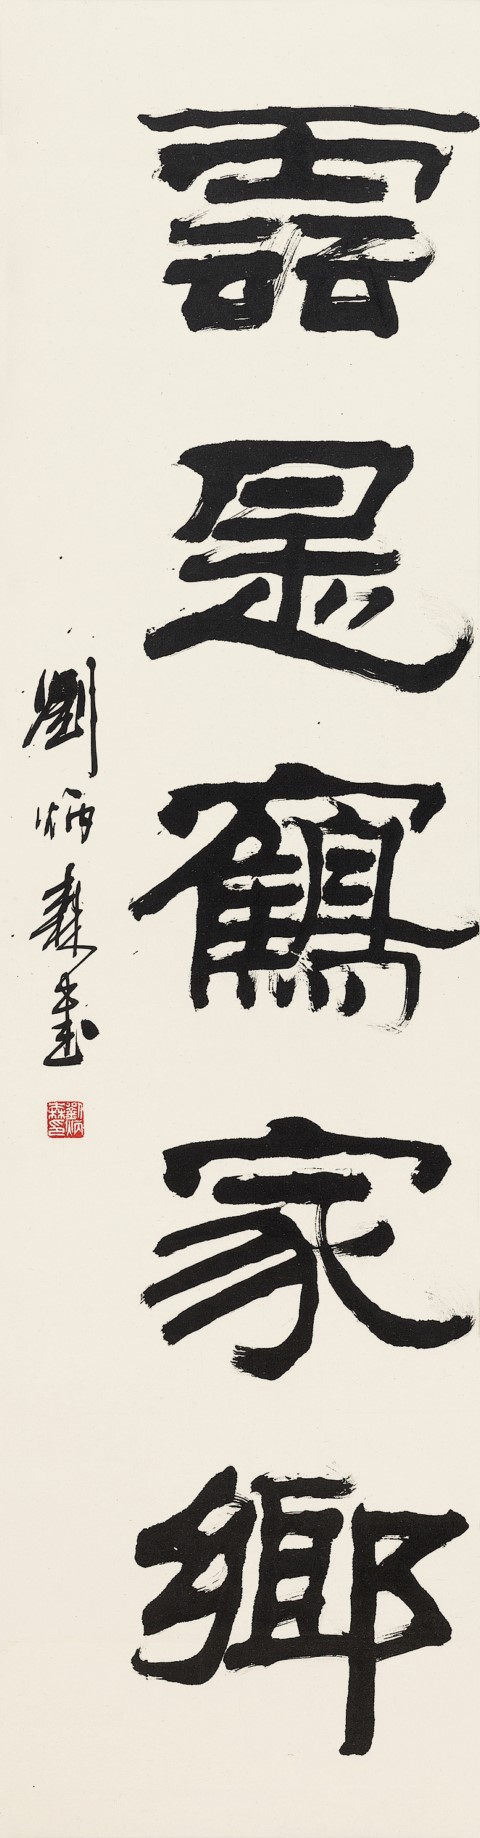 雲是鶴家鄉
劉炳森書
劉炳
森印